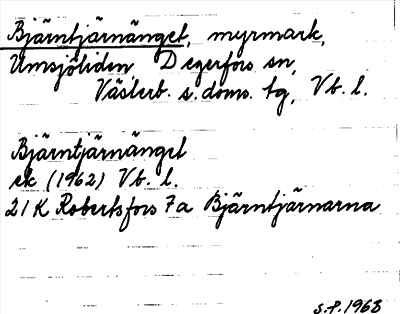 Bjärntjärnänget, myrmark,
Umsjöliden, Degerfors sn,
Västerb. s. doms. tg, Vb. l.
Bjärntjärnänget
ek (1962) Vb. l.
21 K Robertsfors 7a Bjärntjärnarna
S.P. 1968